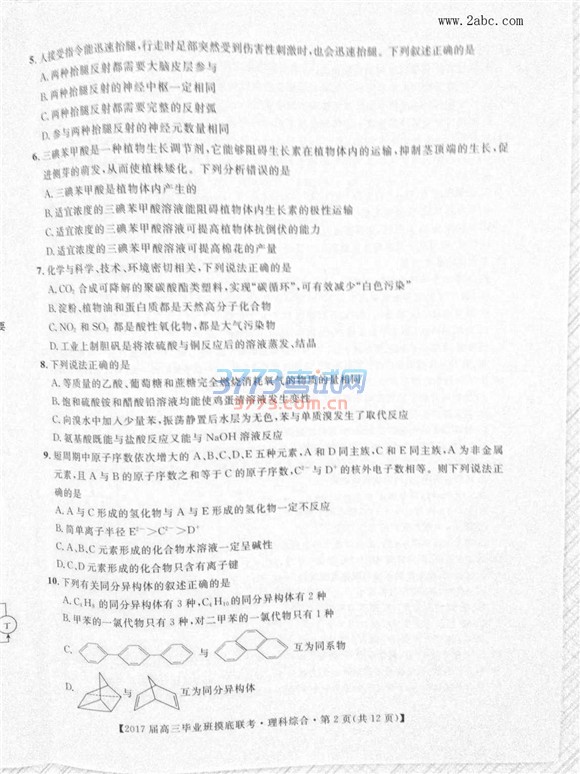 www.2abc.com
5.人接受指令能迅速抬腿,行走时足部突然受到伤害性刺激时,也会迅速抬腿。下列叙述正确的是
A.两种抬腿反射都需要大脑皮层参与
B.两种抬腿反射的神经中枢一定相同
C.两种抬腿反射都需要完整的反射弧
D.参与两种抬腿反射的神经元数量相同
6.三碘苯甲酸是一种植物生长调节剂,它能够阻碍生长素在植物体内的运输,抑制茎顶端的生长,促
进侧芽的萌发,从而使植株矮化。下列分析错误的是
A.三碘苯甲酸是植物体内产生的
B.适宜浓度的三碘苯甲酸溶液能阻碍植物体内生长素的极性运输
C.适宜浓度的三碘苯甲酸溶液可提高植物体抗倒伏的能力
D.适宜浓度的三碘苯甲酸溶液可提高棉花的产量
7.化学与科学、技术、环境密切相关,下列说法正确的是
A.CO₂合成可降解的聚碳酸酯类塑料,实现“碳循环”,可有效减少“白色污染”
B.淀粉、植物油和蛋白质都是天然高分子化合物
C.NO₂和SO₂都是酸性氧化物,都是大气污染物
D.工业上制胆矾是将浓硫酸与铜反应后的溶液蒸发、结晶
8.下列说法正确的是
A.等质量的乙酸、葡萄糖和蔗糖完全燃烧消耗氧气的物质的量相同
B.饱和硫酸铵和醋酸铅溶液均能使鸡蛋清溶液发生变性
C.向溴水中加入少量苯,振荡静置后水层为无色,苯与单质溴发生了取代反应
D.氨基酸既能与盐酸反应又能与NaOH溶液反应
3773考试网
3773.com.cn
9.短周期中原子序数依次增大的A、B、C、D、E五种元素,A和D同主族,C和E同主族,A为非金属
元素,且A与B的原子序数之和等于C的原子序数,C²⁻与D⁺的核外电子数相等。则下列说法正
确的是
A.A与C形成的氢化物与A与E形成的氢化物一定不反应
B.简单离子半径E²⁻>C²⁻>D⁺
C.A、B、C元素形成的化合物水溶液一定呈碱性
D.A、B、C元素形成的化合物只含有离子键
10.下列有关同分异构体的叙述正确的是
B.甲苯的一氯代物只有3种,对二甲苯的一氯代物只有1种
C. 与 互为同系物
D. 与 互为同分异构体
【2017届高三毕业班摸底联考·理科综合·第2页(共12页)】
要
T